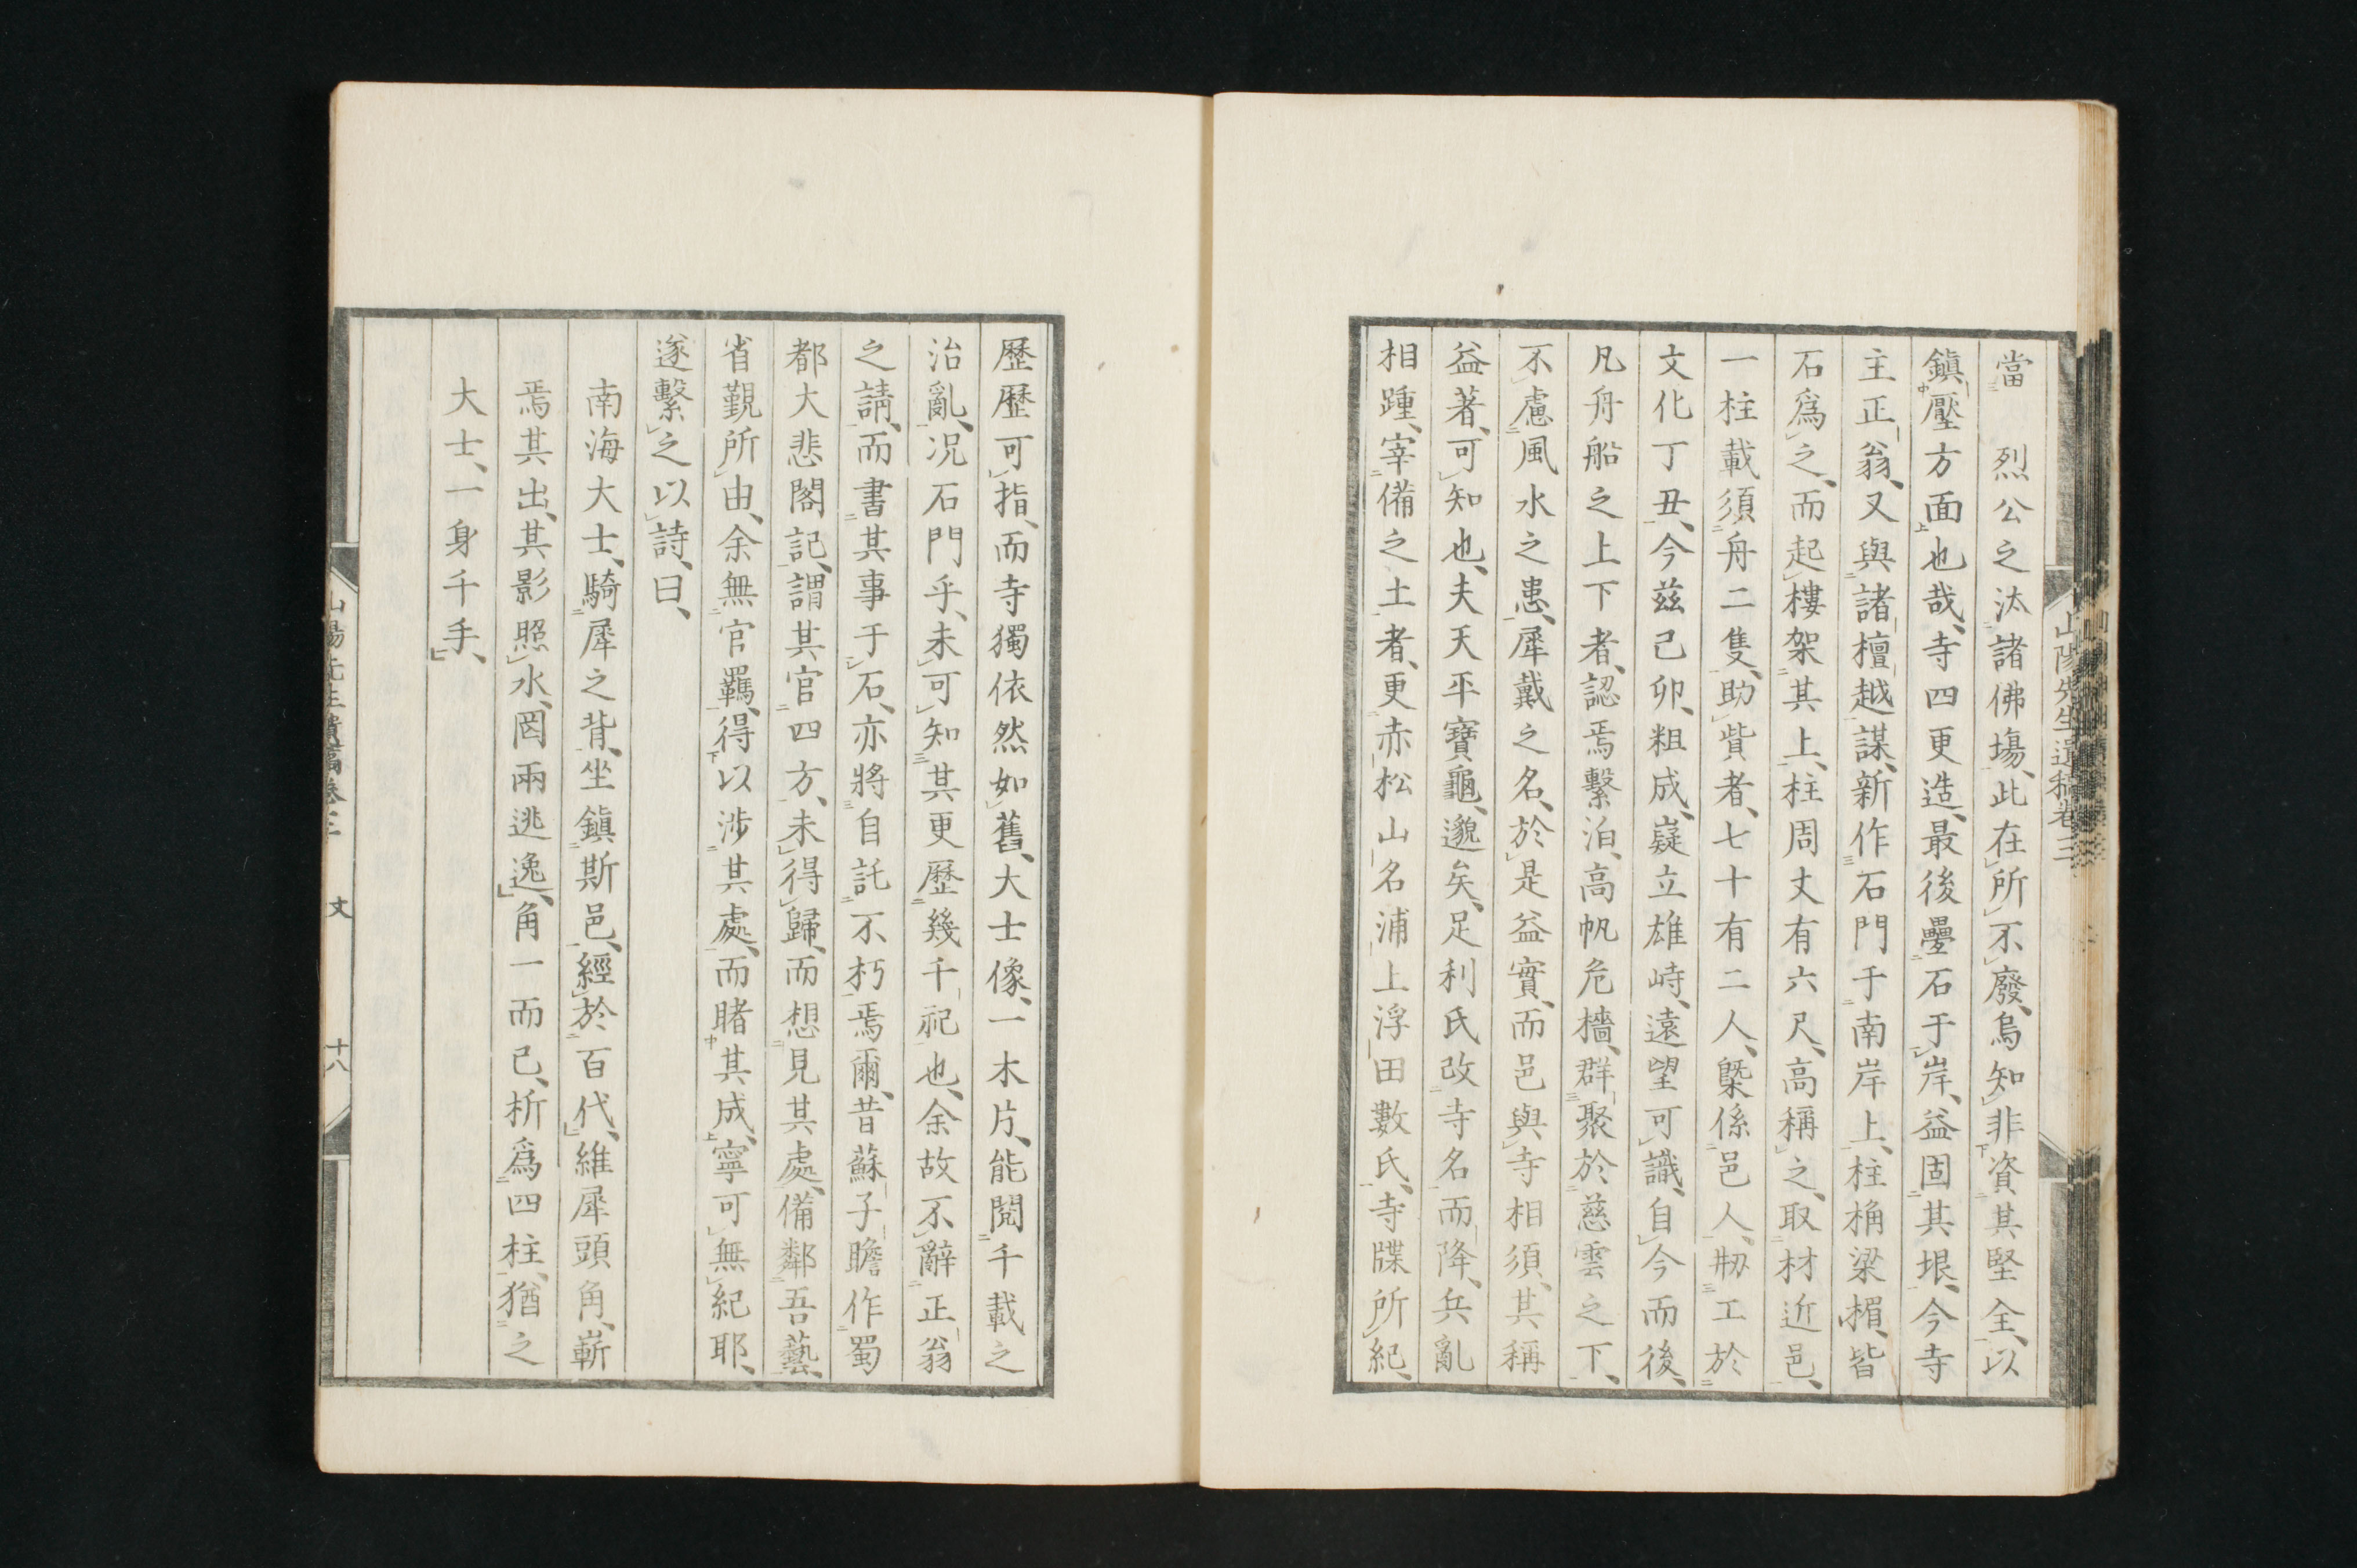 當　烈公之汰諸佛場、此在所不廢、烏知非資其堅全、以
鎭壓方面也哉、寺四更造、最後疊石于岸、益固其垠、今寺
主正翁、又與諸檀越謀、新作石門于南岸上、柱桷梁楣、皆
石爲之、而起樓架其上、柱周丈有六尺、高稱之、取材近邑、
一柱載須舟二隻、助貲者、七十有二人、槩係邑人、剏工於
文化丁丑、今茲己卯、粗成、嶷立雄峙、遠望可識、自今而後、
凡舟船之上下者、認焉繫泊、高帆危檣、群聚於慈雲之下、
不慮風水之患、犀戴之名、於是益實、而邑與寺相須、其稱
益著、可知也、夫天平寶龜、邈矣、足利氏改寺名而降、兵亂
相踵、宰備之土者、更赤松山名浦上浮田數氏、寺牒所紀、
歷歷可指、而寺獨依然如舊、大士像、一木片、能閱千載之
治亂、况石門乎、未可知其更歷幾千祀也、余故不辭正翁
之請、而書其事于石、亦將自託不朽焉爾、昔蘇子瞻作蜀
都大悲閣記、謂其官四方、未得歸、而想見其處、備鄰吾藝、
省覲所由、余無官羈、得以涉其處、而睹其成、寧可無紀耶、
遂繫之以詩、曰、
南海大士、騎犀之背、坐鎭斯邑、經於百代、維犀頭角、嶄
焉其出、其影照水、罔兩逃逸、角一而已、析爲四柱、猶之
大士、一身千手、
山陽先生遺稿卷三　文　十八